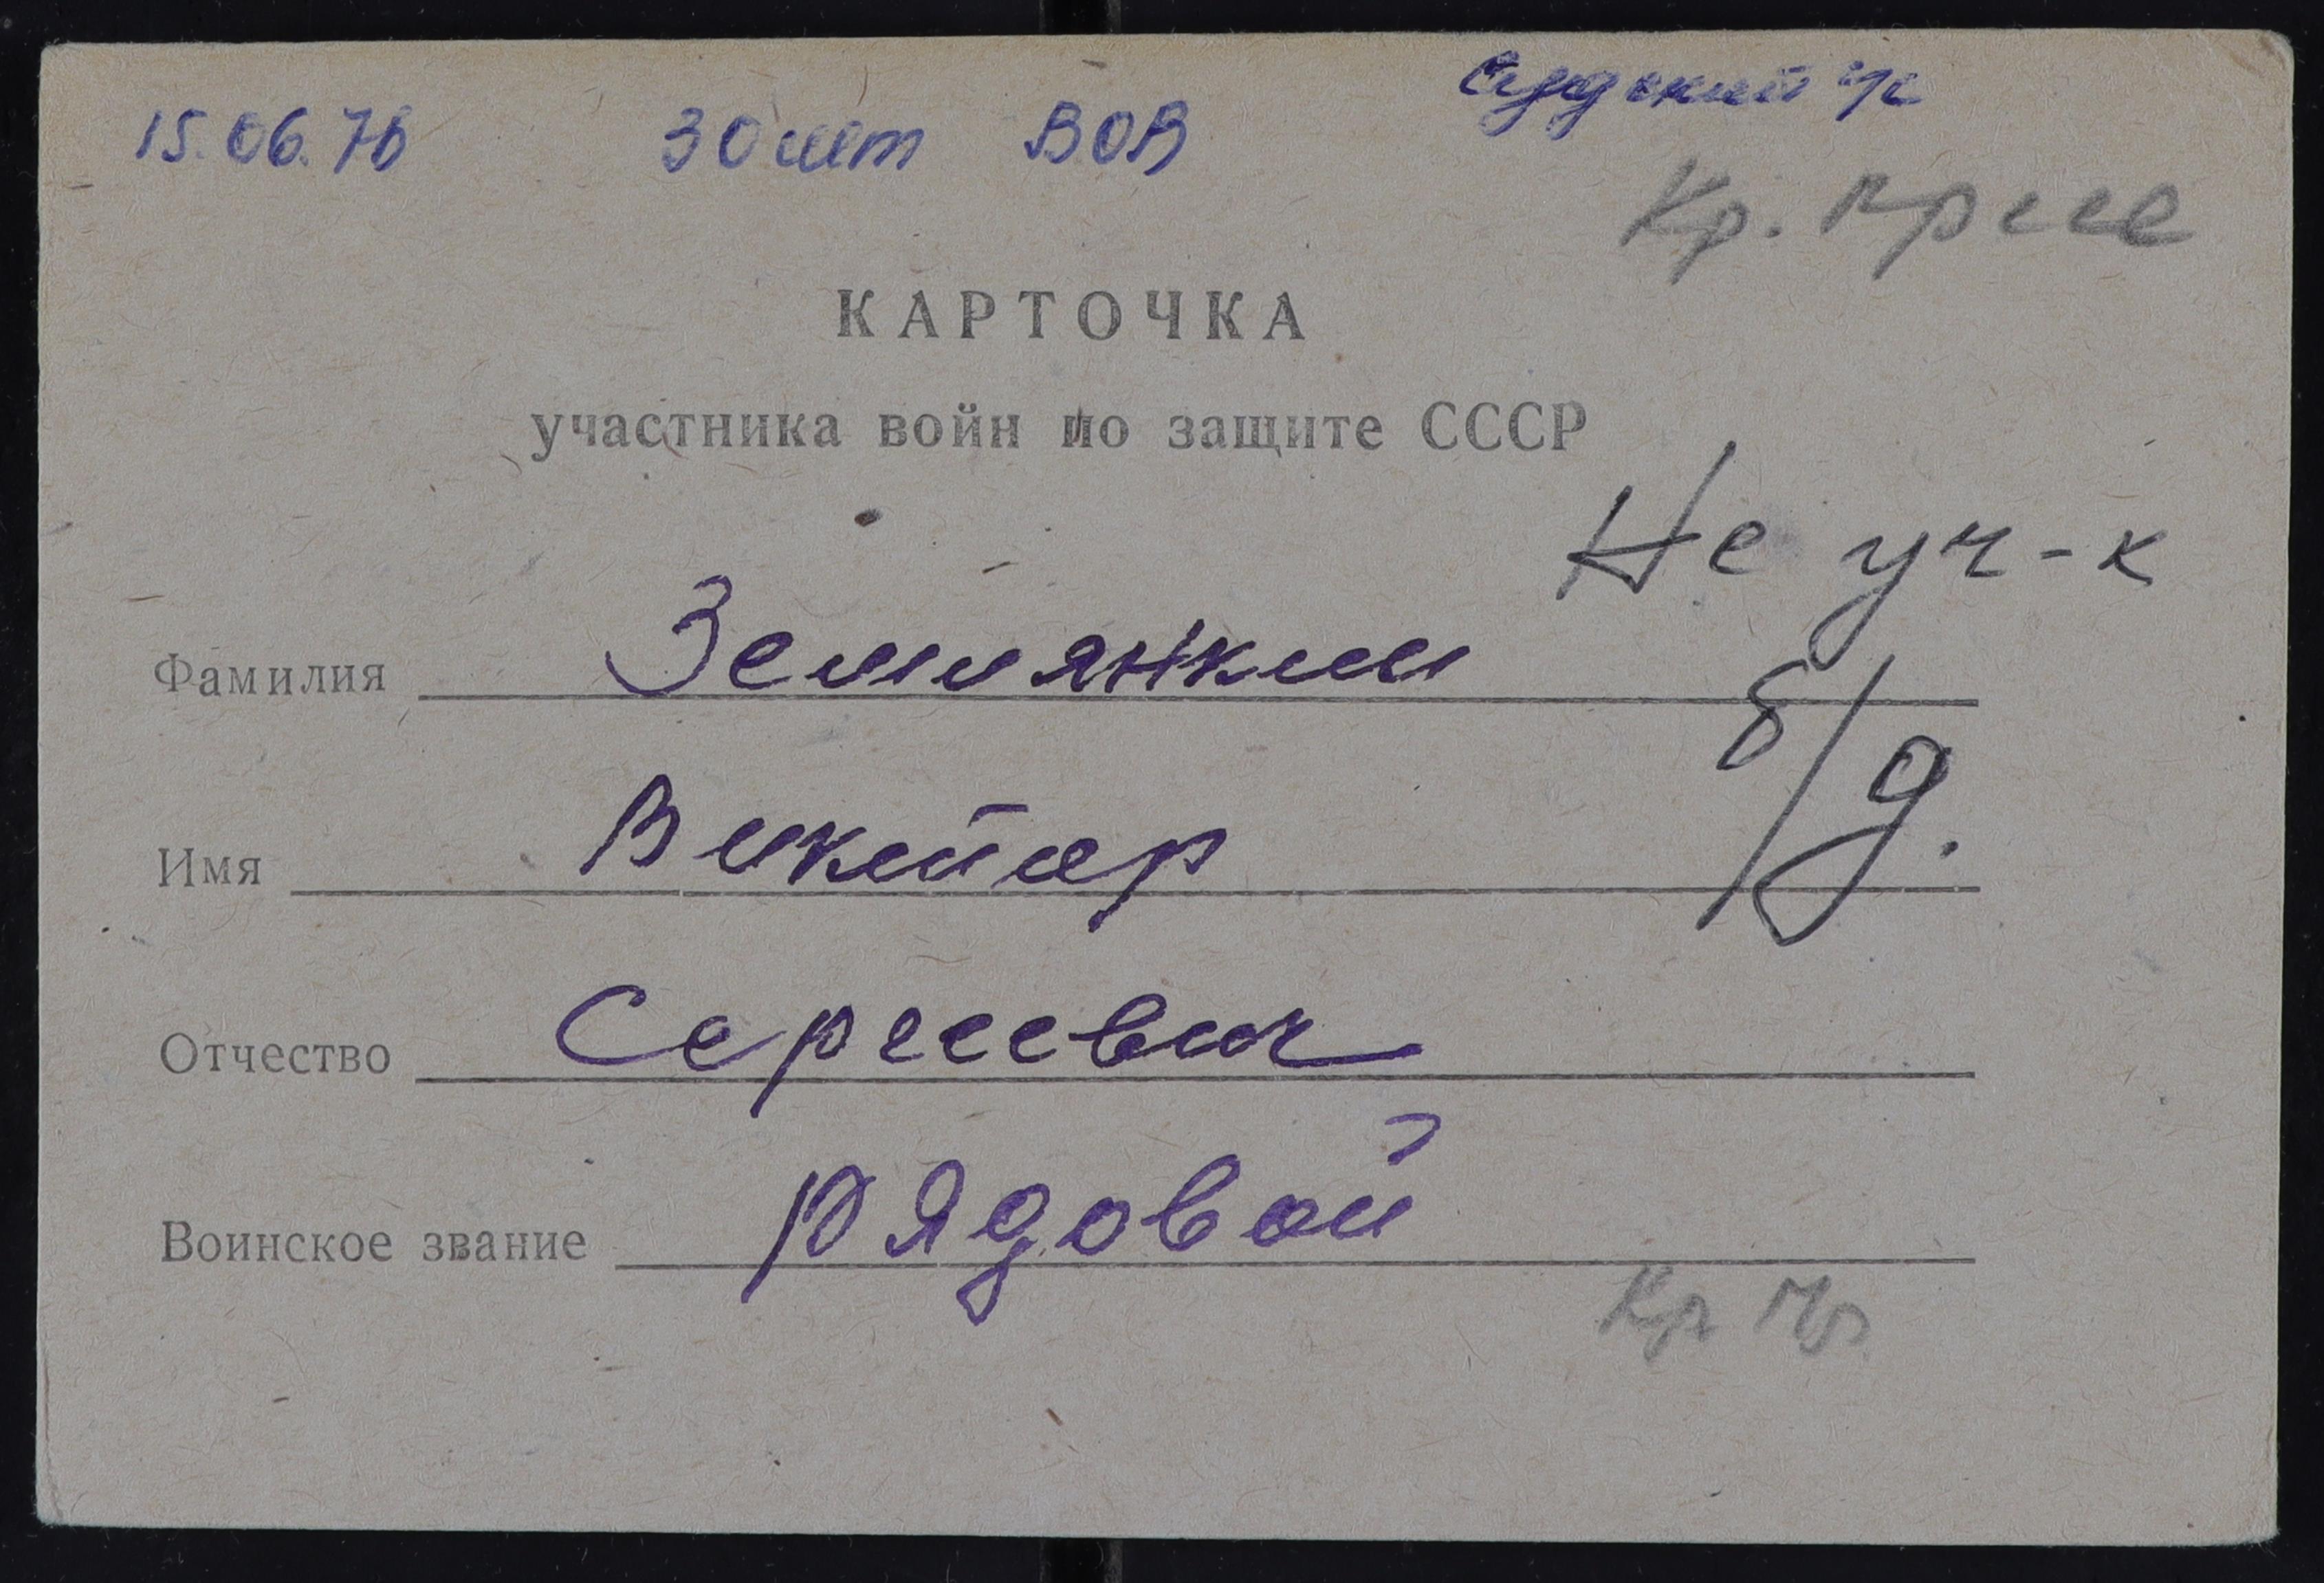 15.06.78 30 лет ВОВ
Кр.
КАРТОЧКА
участника войн по защите СССР
Не уч-к
б/д.
Фамилия Землянкин
Имя Виктор
Отчество Сергеевич
Воинское звание рядовой
Кр